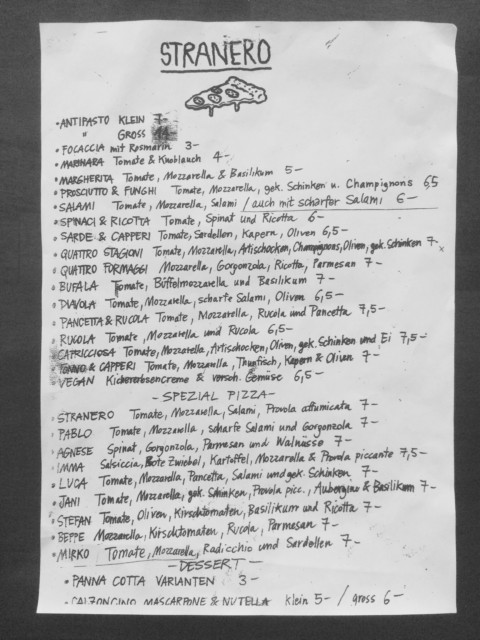 STRANERO
• ANTIPASTO KLEIN 7-
" GROSS 11
• FOCACCIA mit Rosmarin 3-
• MARINARA Tomate & Knoblauch 4-
• MARGHERITA Tomate, Mozzarella & Basilikum 5-
• PROSCIUTTO & FUNGHI Tomate, Mozzarella, gek. Schinken u. Champignons 6,5
• SALAMI Tomate, Mozzarella, Salami / auch mit scharfer Salami 6-
• SPINACI & RICOTTA Tomate, Spinat und Ricotta 6-
• SARDE & CAPPERI Tomate, Sardellen, Kapern, Oliven 6,5-
• QUATTRO STAGIONI Tomate, Mozzarella, Artischocken, Champignons, Oliven, gek. Schinken 7-
• QUATTRO FORMAGGI Mozzarella, Gorgonzola, Ricotta, Parmesan 7-
• BUFALA Tomate, Büffelmozzarella und Basilikum 7-
• DIAVOLA Tomate, Mozzarella, scharfe Salami, Oliven 6,5-
• PANCETTA & RUCOLA Tomate, Mozzarella, Rucola und Pancetta 7,5-
• RUCOLA Tomate, Mozzarella und Rucola 6,5-
• CAPRICCIOSA Tomate, Mozzarella, Artischocken, Oliven, gek. Schinken und Ei 7,5-
• TONNO & CAPPERI Tomate, Mozzarella, Thunfisch, Kapern & Oliven 7-
• VEGAN Kichererbsencreme & versch. Gemüse 6,5-
- SPEZIAL PIZZA -
• STRANERO Tomate, Mozzarella, Salami, Provola affumicata 7-
• PABLO Tomate, Mozzarella, scharfe Salami und Gorgonzola 7-
• AGNESE Spinat, Gorgonzola, Parmesan und Walnüsse 7-
• IMMA Salsiccia, Rote Zwiebel, Kartoffel, Mozzarella & Provola piccante 7,5-
• LUCA Tomate, Mozzarella, Pancetta, Salami und gek. Schinken 7-
• JANI Tomate, Mozzarella, gek. Schinken, Provola picc., Aubergine & Basilikum 7-
• STEFAN Tomate, Oliven, Kirschtomaten, Basilikum und Ricotta 7-
• BEPPE Mozzarella, Kirschtomaten, Rucola, Parmesan 7-
• MIRKO Tomate, Mozzarella, Radicchio und Sardellen 7-
- DESSERT -
• PANNA COTTA VARIANTEN 3-
• CALZONCINO MASCARPONE & NUTELLA klein 5- / gross 6-